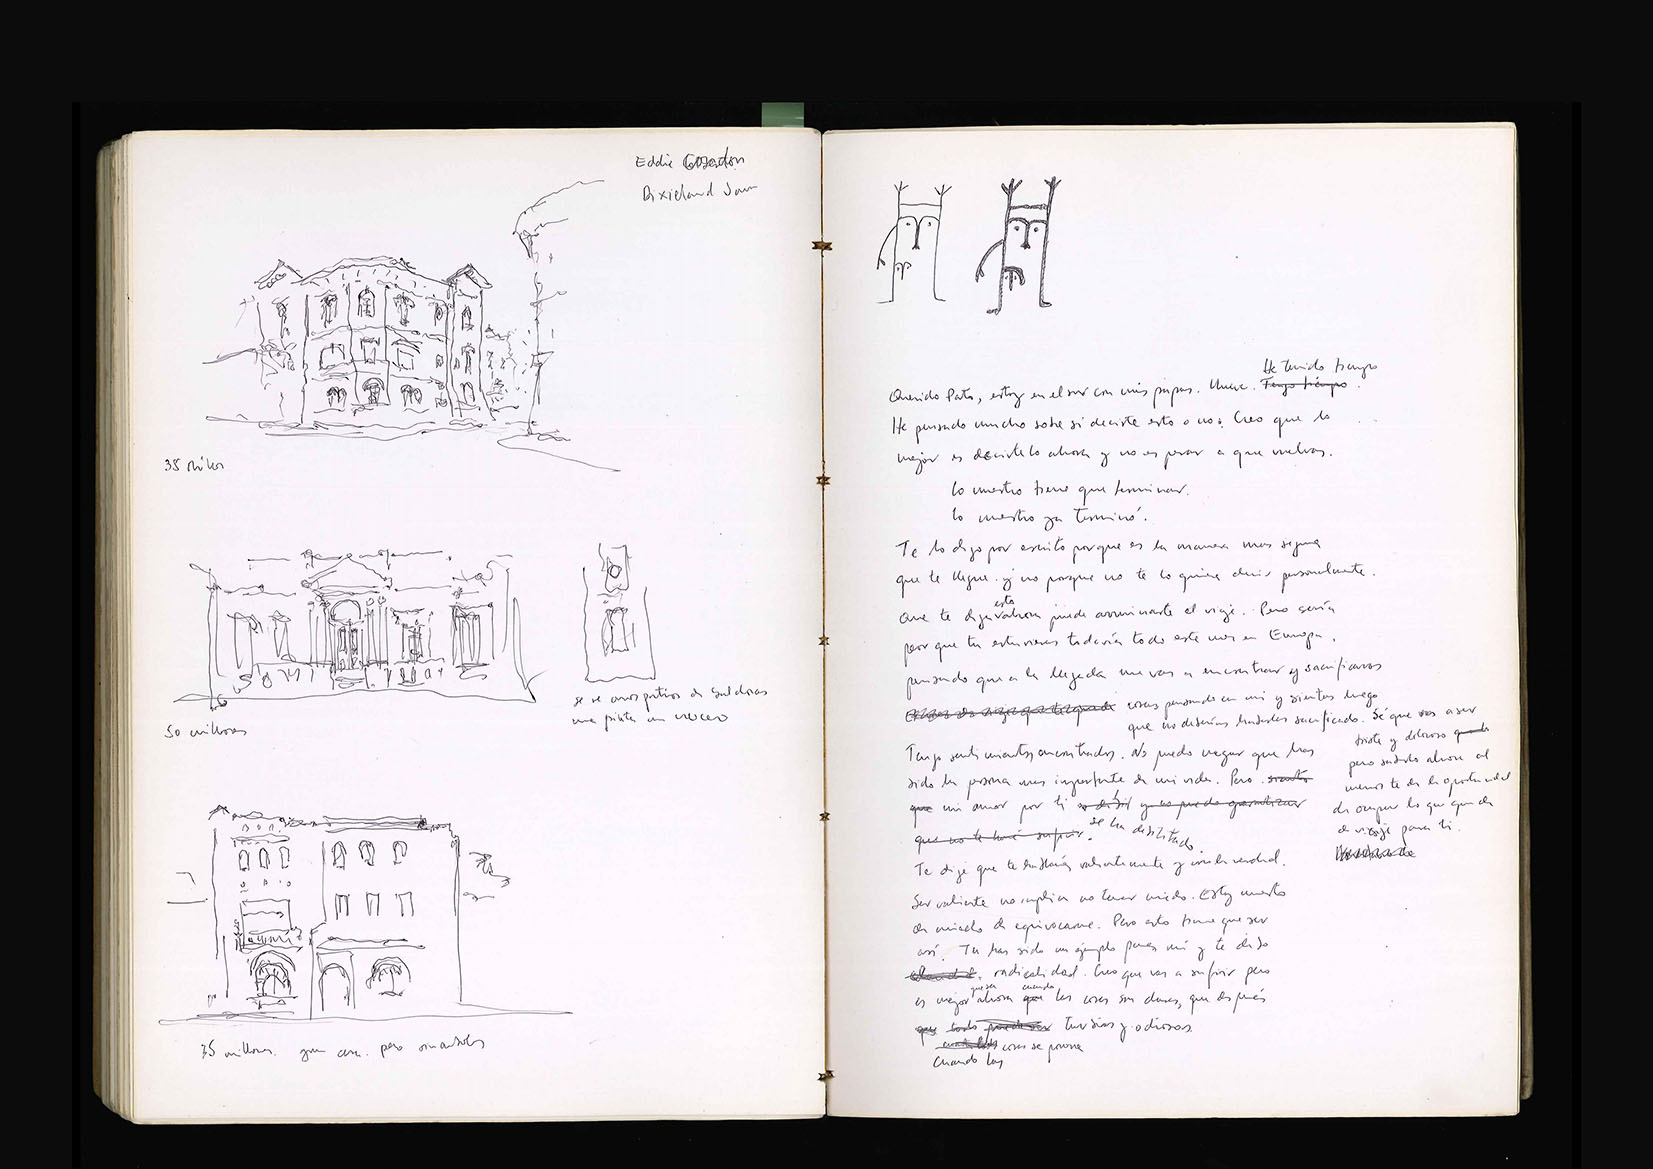 Eddie
Dixieland
35 millones
se ve unos patios de baldosas
una pinta un
50 millones
35 millones. gran casa. pero
He tenido tiempo
Querido Pato, estoy en el sur con mis papas. Llueve. Tengo tiempo.
He pensado mucho sobre si decirte esto o no. Creo que lo
mejor es decirtelo ahora y no esperar a que vuelvas.
lo nuestro tiene que terminar.
lo nuestro ya terminó.
Te lo digo por escrito porque es la manera mas segura
que te llegue. y no porque no te lo quiera decir personalmente.
esto
Que te diga ahora puede arruinarte el viaje. Pero sería
peor que tu estuvieras todavía todo este mes en Europa,
pensando que a la llegada me vas a encontrar y sacrificaras
cosas pensando en mi y sientas luego
que no deberías haberlas sacrificado. Sé que vas a ser
triste y doloroso
pero saberlo ahora al
menos te da la oportunidad
de ocupar lo que queda
de viaje para ti.
Tengo sentimientos encontrados. No puedo negar que has
sido la persona mas importante de mi vida. Pero siento
que mi amor por ti y no puedo garantizar
que no te haré sufrir. se ha debilitado.
Te dije que te hablaría valientemente y con la verdad.
Ser valiente no implica no tener miedo. Estoy muerto
de miedo de equivocarme. Pero esto tiene que ser
así. Tu has sido un ejemplo para mí y te debo
radicalidad. Creo que vas a sufrir pero
que sea cuando
es mejor ahora que las cosas son claras, que después
que todo puede ser turbias y odiosas
cosas se ponen
cuando las